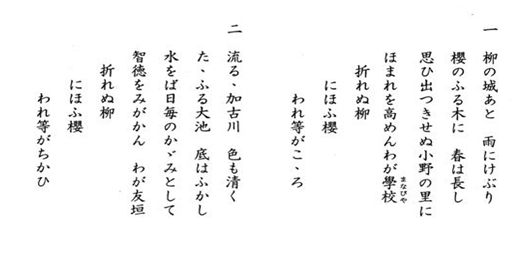 一 柳の城あと 雨にけぶり
櫻のふる木に 春は長し
思ひ出つきせぬ小野の里に
ほまれを高めんわが學校
まなびや
折れぬ柳
にほふ櫻
われ等がこゝろ
二 流るゝ加古川 色も清く
たゝふる大池 底はふかし
水をば日毎のかゞみとして
智徳をみがかん わが友垣
折れぬ柳
にほふ櫻
われ等がちかひ